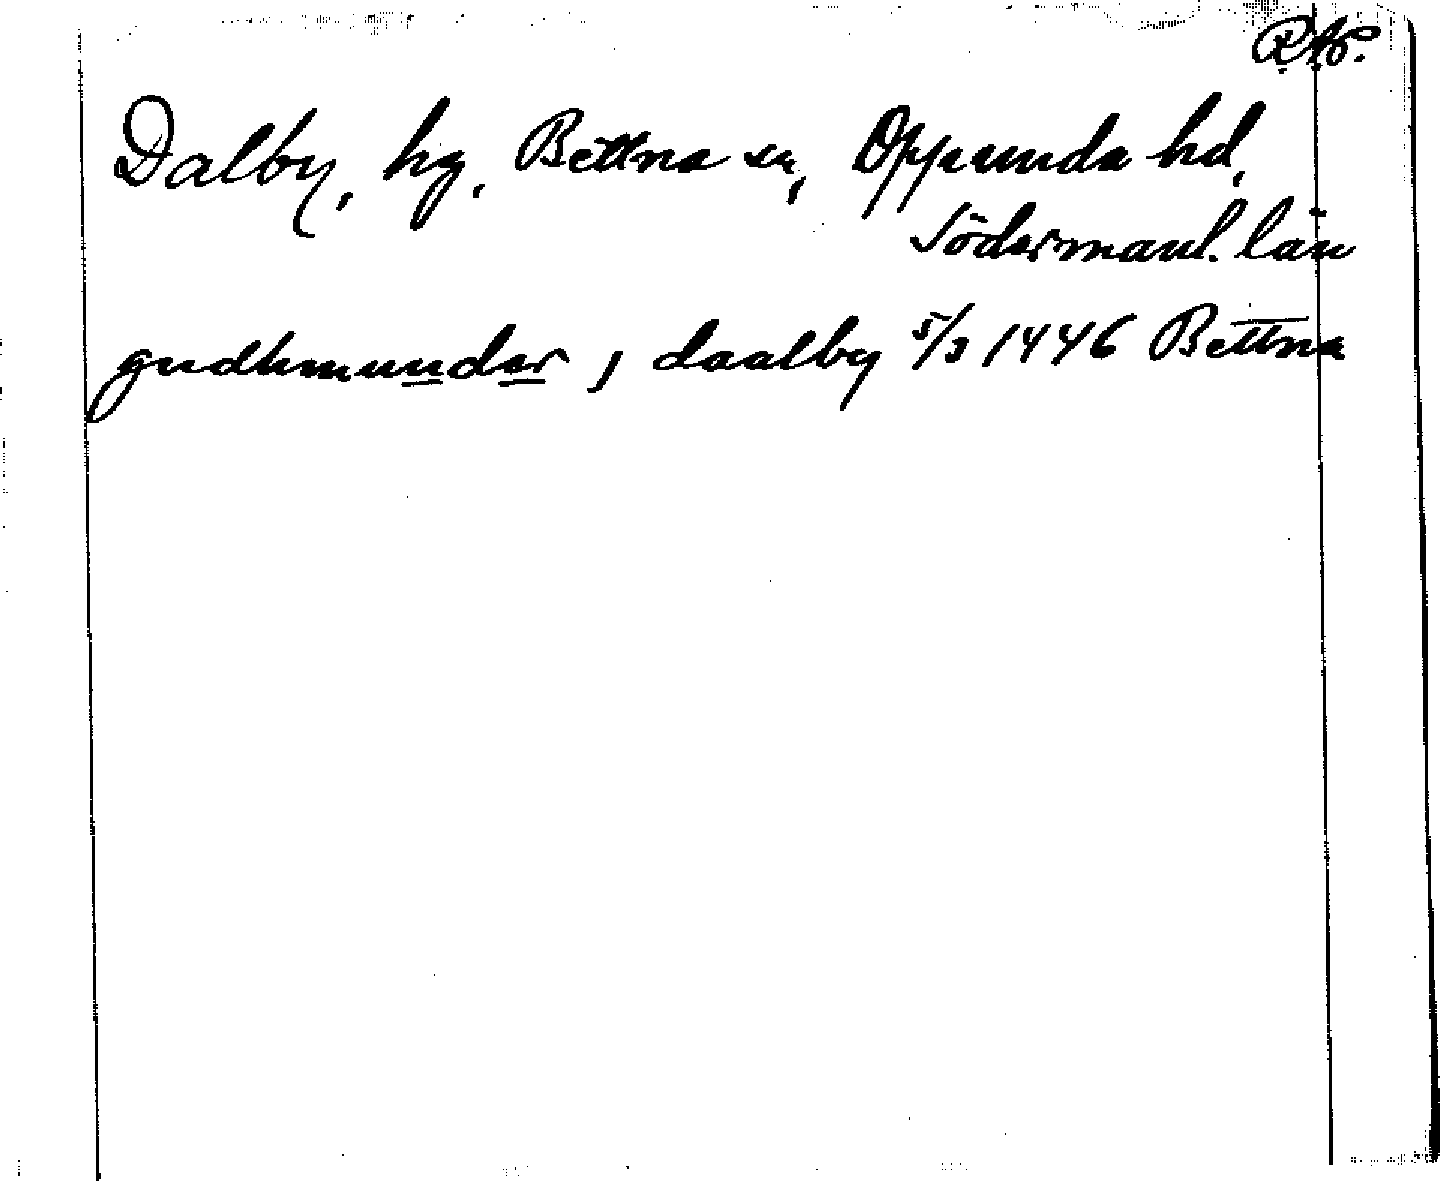 RAp.
Dalby, hg, Bettna sn, Oppunda hd,
Södermanl. län
gudhmunder j daalby 5/3 1446 Bettna